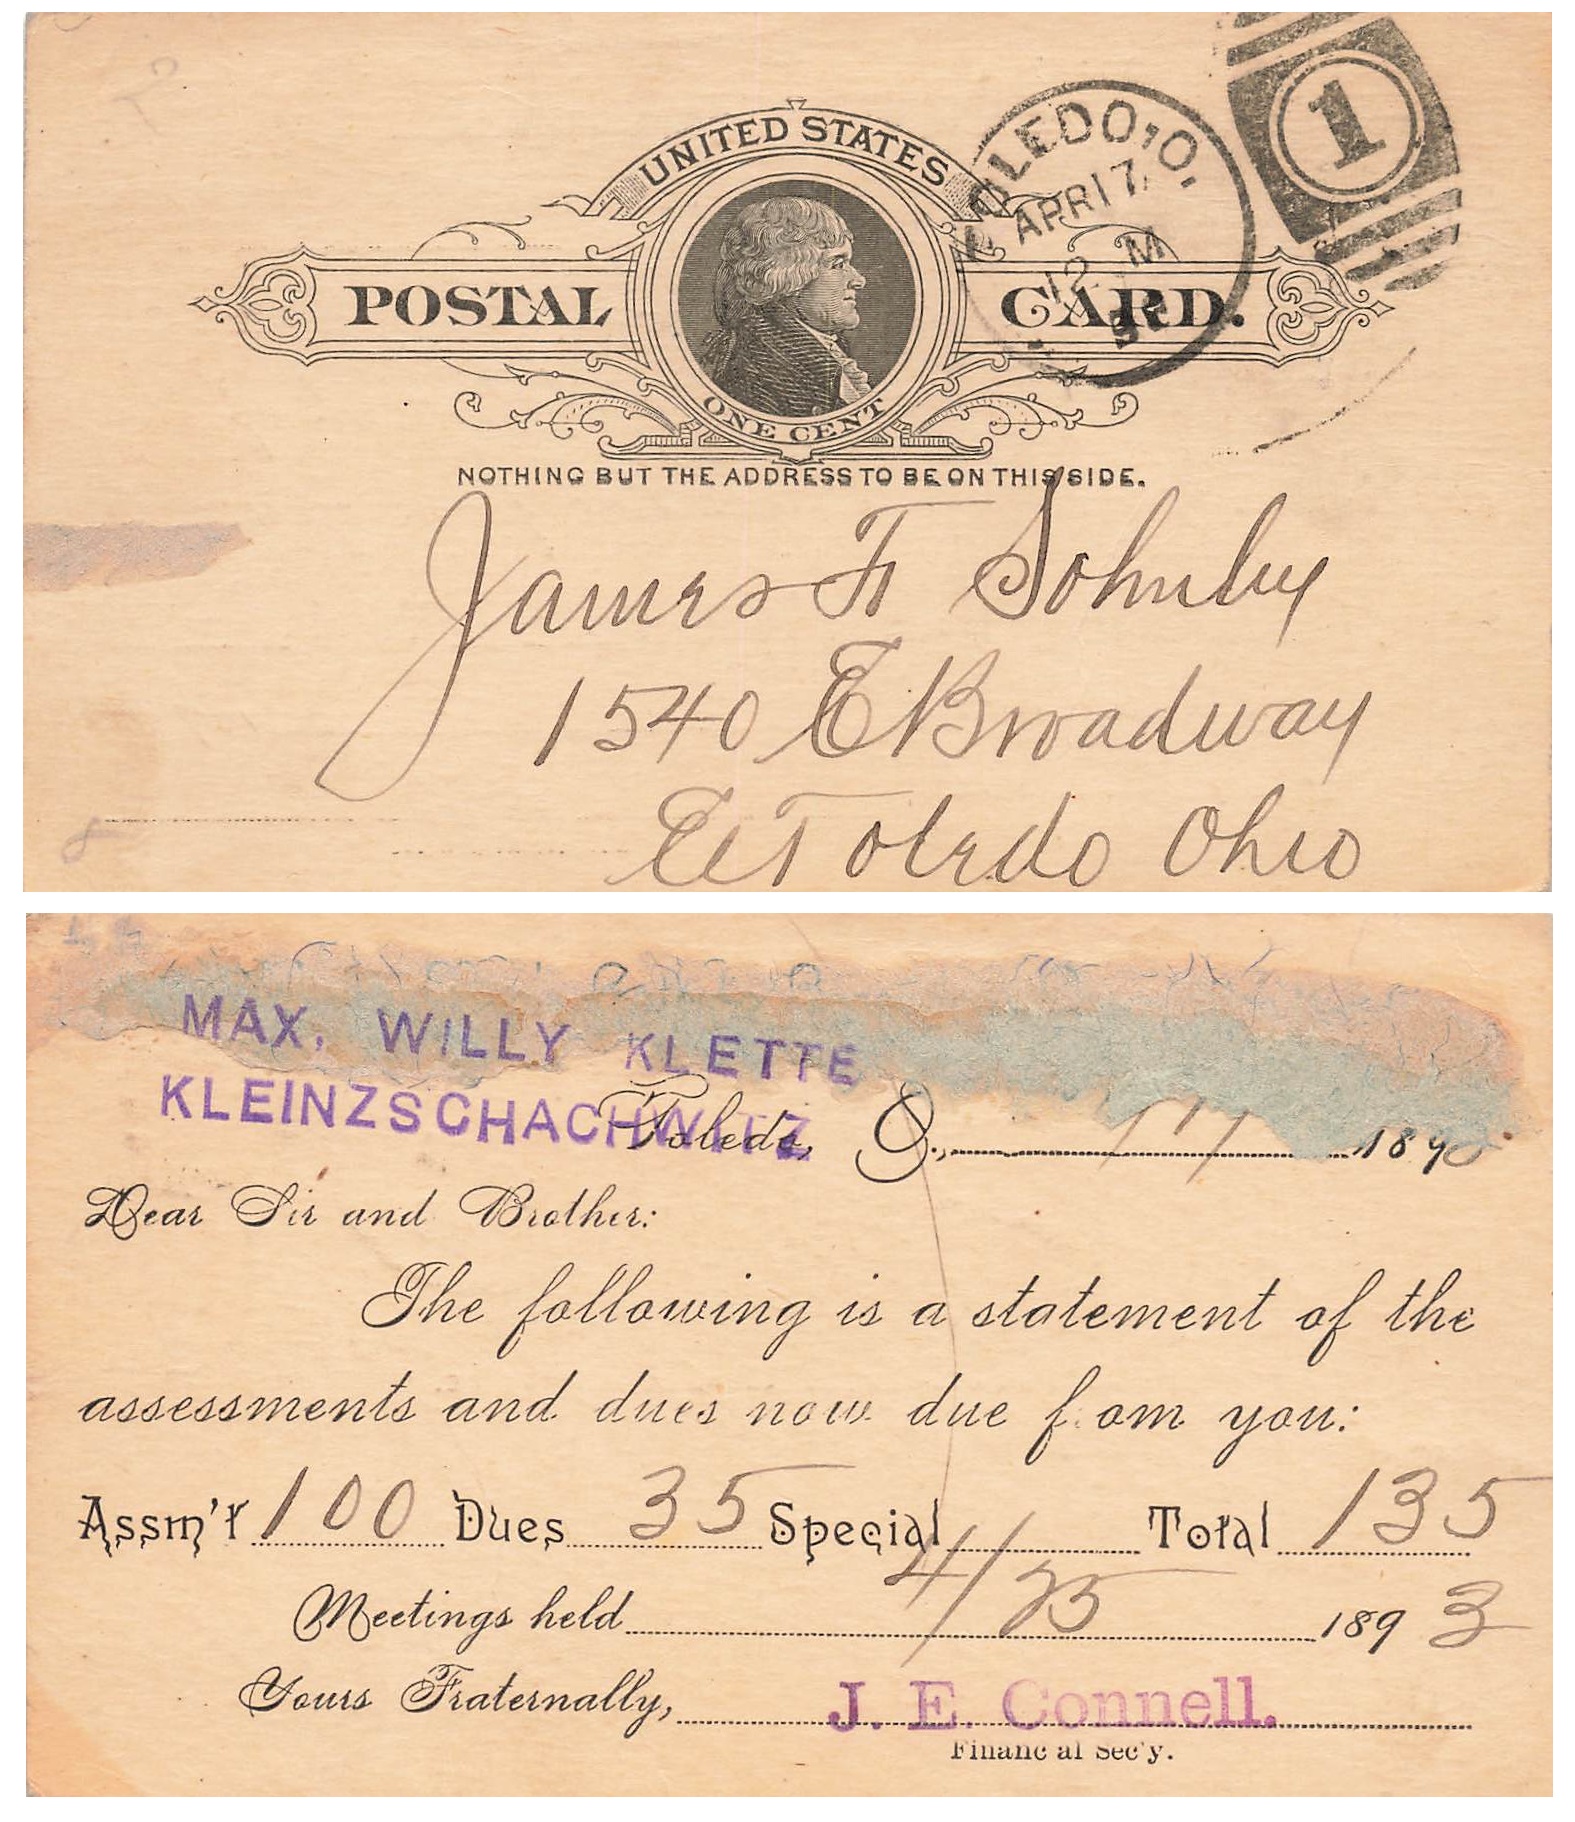 UNITED STATES
POSTAL CARD.
ONE CENT
TOLEDO, O.
APR 17
12 M
1
NOTHING BUT THE ADDRESS TO BE ON THIS SIDE.
James F
1540 E Broadway
E Toledo Ohio
MAX, WILLY KLETTE
KLEINZSCHACHWITZ
Toledo, O., 189
Dear Sir and Brother:
The following is a statement of the
assessments and dues now due from you:
Assm't 1 00 Dues 35 Special Total 1 35
Meetings held 4/25 1893
Yours Fraternally, J. E. Connell.
Financial Sec'y.